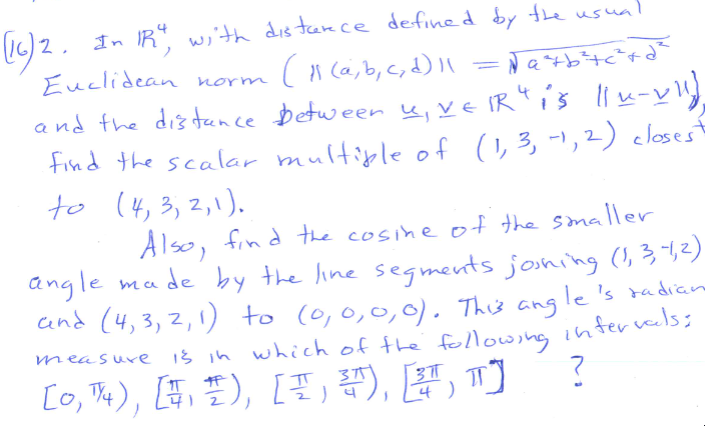 (16) 2. In ℝ⁴, with distance defined by the usual
Euclidean norm ( ‖(a,b,c,d)‖ = √a²+b²+c²+d²
and the distance between u, v ∈ ℝ⁴ is ‖u-v‖),
find the scalar multiple of (1, 3, -1, 2) closest
to (4, 3, 2, 1).
Also, find the cosine of the smaller
angle made by the line segments joining (1, 3, -1, 2)
and (4, 3, 2, 1) to (0, 0, 0, 0). This angle's radian
measure is in which of the following intervals:
[0, π/4), [π/4, π/2), [π/2, 3π/4), [3π/4, π] ?